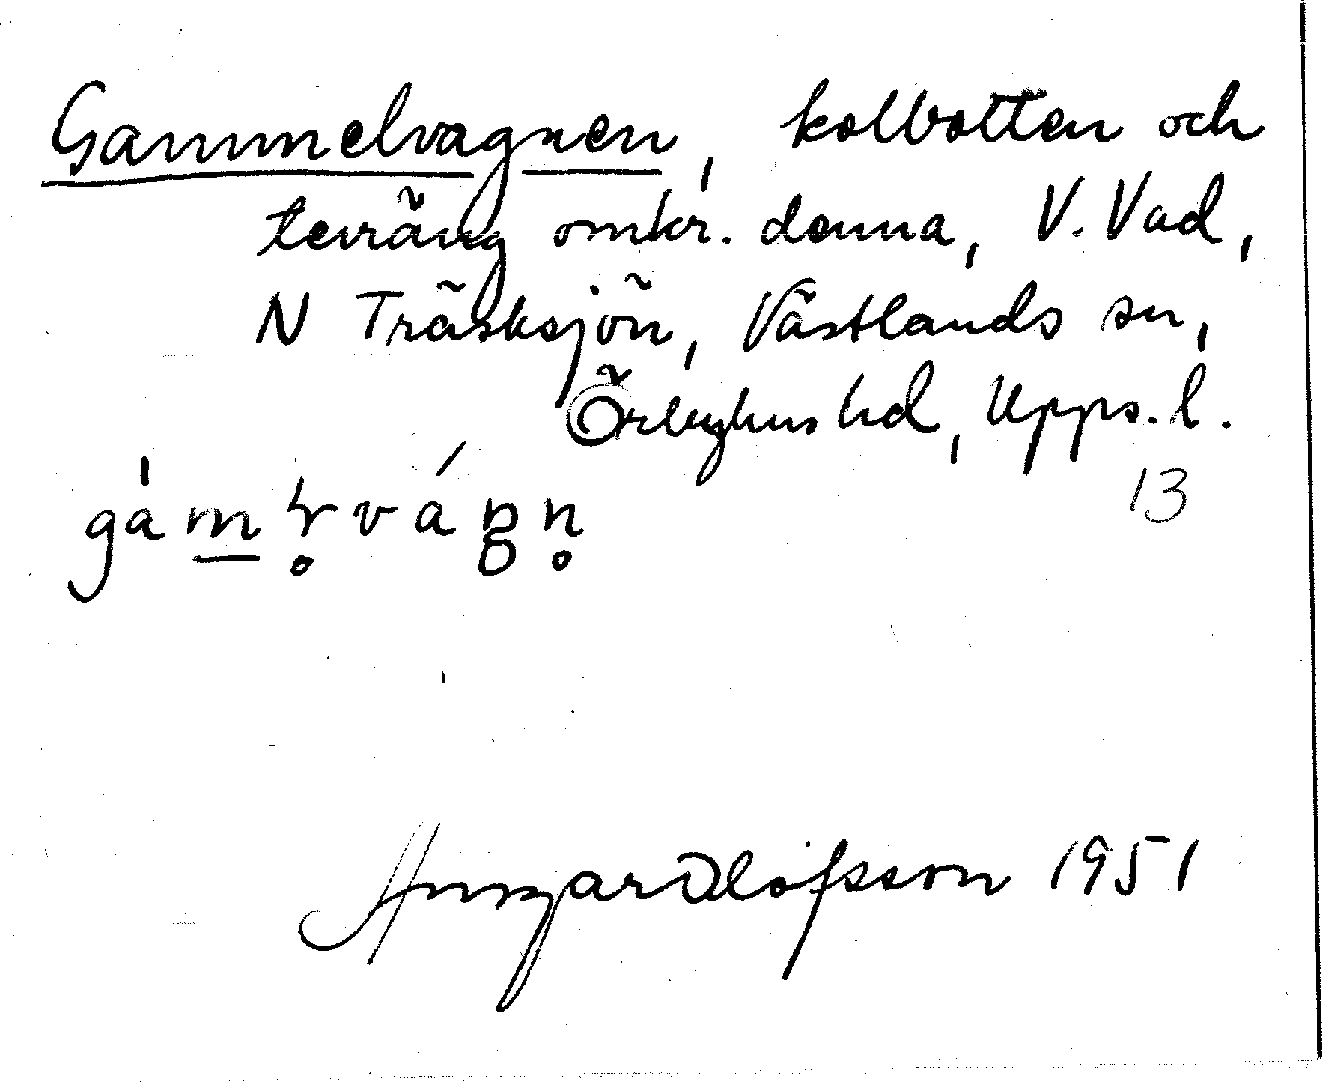 Gammelvagnen, kolbotten och
terräng omkr. denna, V. Vad,
N Träsksjön, Västlands sn,
Örbyhus hd, Upps. l.
13
Ansgar Olofsson 1951